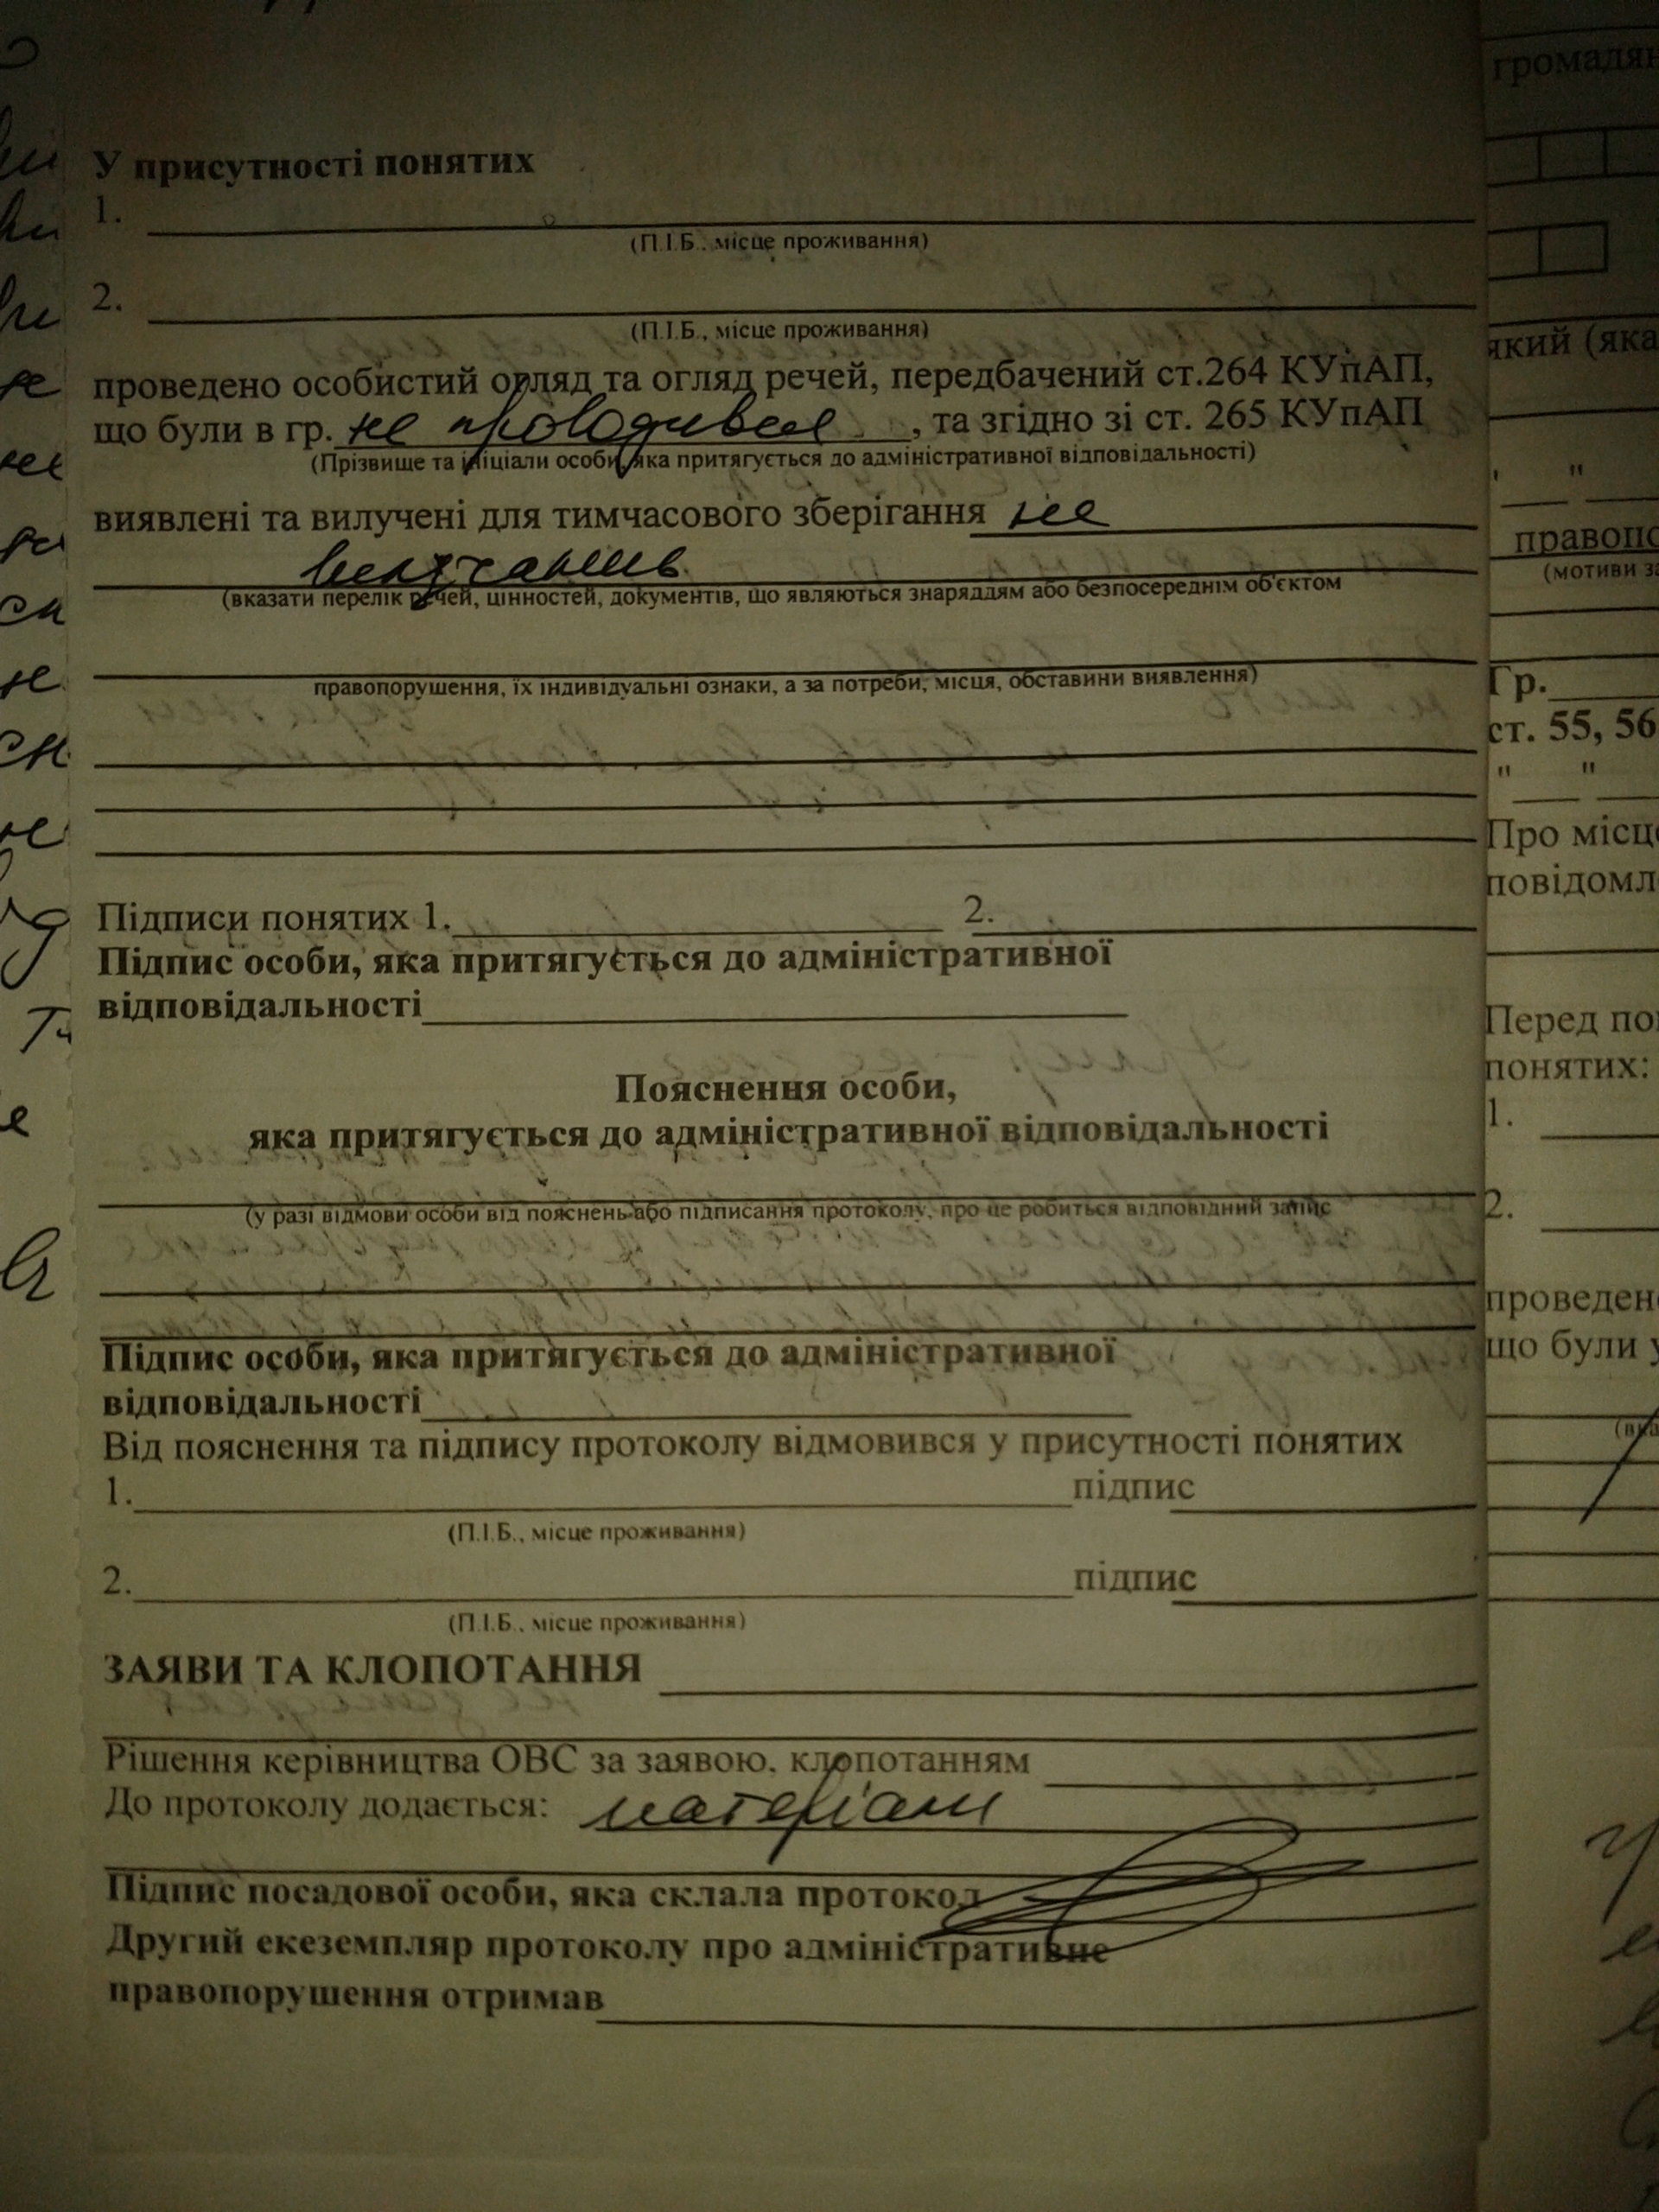 У присутності понятих
1.
(П.І.Б., місце проживання)
2.
(П.І.Б., місце проживання)
проведено особистий огляд та огляд речей, передбачений ст.264 КУпАП,
що були в гр. не проводився, та згідно зі ст. 265 КУпАП
(Прізвище та ініціали особи, яка притягується до адміністративної відповідальності)
виявлені та вилучені для тимчасового зберігання не
вилучались
(вказати перелік речей, цінностей, документів, що являються знаряддям або безпосереднім об'єктом
правопорушення, їх індивідуальні ознаки, а за потреби, місця, обставини виявлення)
Підписи понятих 1. 2.
Підпис особи, яка притягується до адміністративної
відповідальності
Пояснення особи,
яка притягується до адміністративної відповідальності
(у разі відмови особи від пояснень або підписання протоколу, про це робиться відповідний запис
Підпис особи, яка притягується до адміністративної
відповідальності
Від пояснення та підпису протоколу відмовився у присутності понятих
1. підпис
(П.І.Б., місце проживання)
2. підпис
(П.І.Б., місце проживання)
ЗАЯВИ ТА КЛОПОТАННЯ
Рішення керівництва ОВС за заявою, клопотанням
До протоколу додається: матеріали
Підпис посадової особи, яка склала протокол
Другий екеземпляр протоколу про адміністративне
правопорушення отримав
який (яка
Гр.
ст. 55, 56
Про
понятих:
1.
2.
що були у